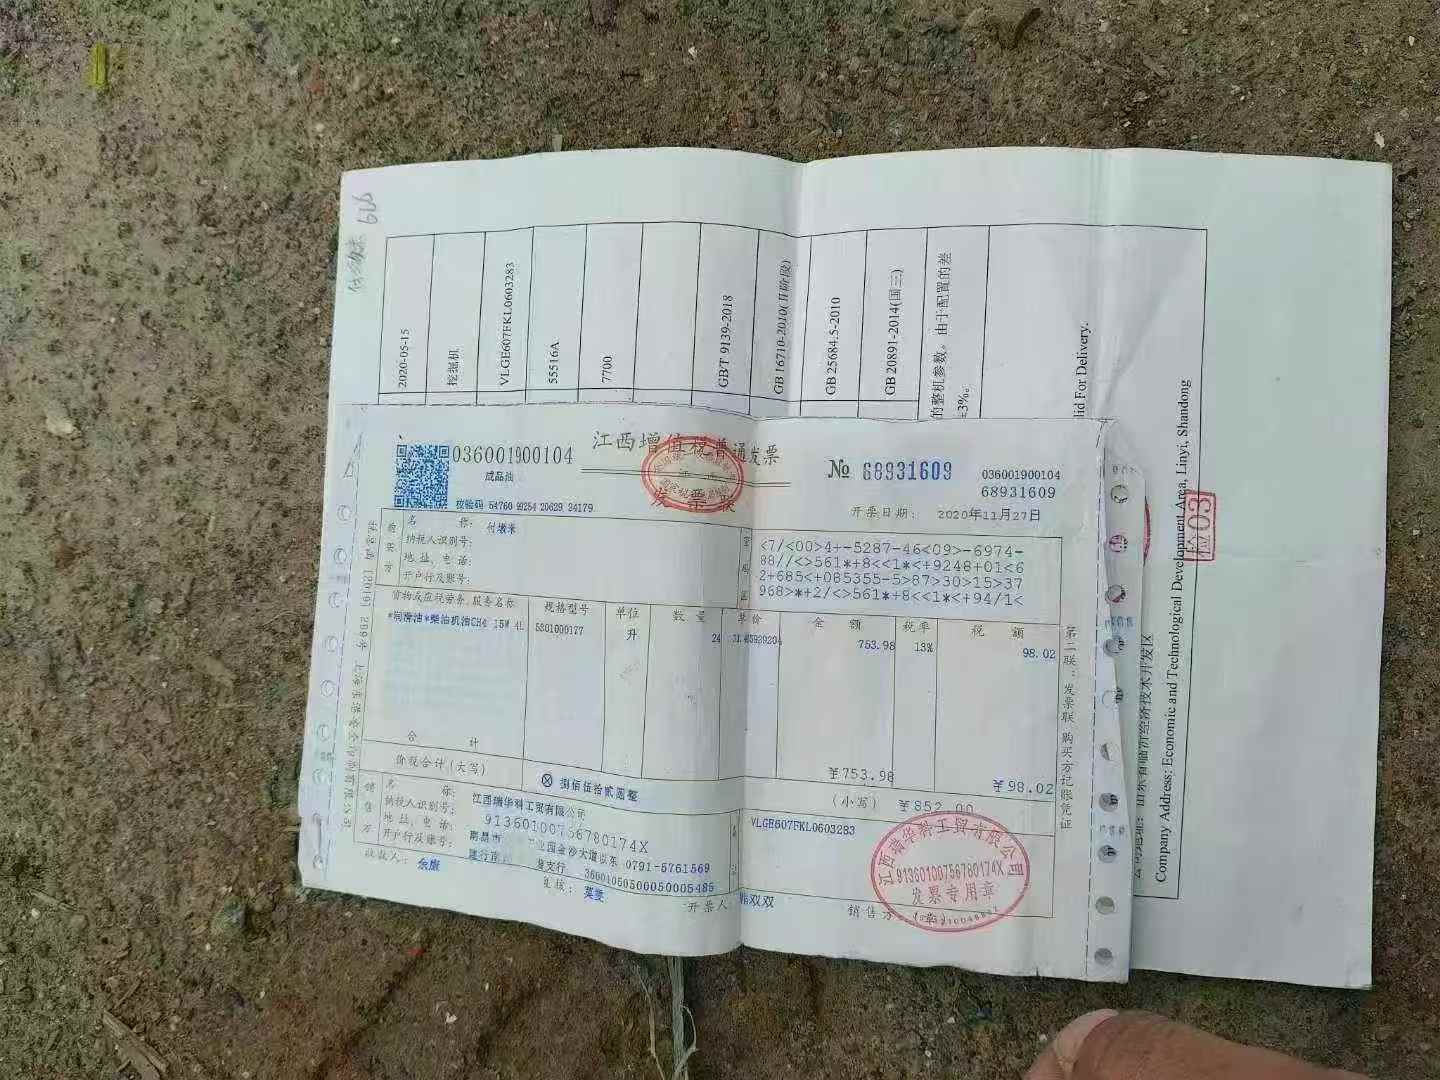 618
2020-05-15
挖掘机
VLGE607FKL0603283
55516A
7700
GB/T 9139-2018
GB 16710-2010(II阶段)
GB 25684.5-2010
GB 20891-2014(国三)
的整机参数。由于配置的差
±3%。
lid For Delivery.
Company Address: Economic and Technological Development Area, Linyi, Shandong
检03
036001900104
江西增值税普通发票
发票联
№ 68931609
036001900104
68931609
成品油
校验码 54760 99254 20629 24179
开票日期: 2020年11月27日
购买方
名 称: 付墩米
纳税人识别号:
地址、电话:
开户行及账号:
<7/<00>4+-5287-46<09>-6974-
88//<>561*+8<<1*<+9248+01<6
2+685<+085355-5>87>30>15>37
968>*+2/<>561*+8<<1*<+94/1<
货物或应税劳务、服务名称 规格型号 单位 数量 单价 金额 税率 税额
*润滑油*柴油机油CH4 15W 4L 5801000177 升 24 753.98 13% 98.02
合 计 ¥753.98 ¥98.02
价税合计(大写) ⊗ 捌佰伍拾贰圆整 (小写) ¥852.00
销售方
名 称: 江西瑞华科工贸有限公司
纳税人识别号: 91360100756780174X
地址、电话: 南昌市 业园金沙大道以东 0791-5761569
开户行及账号: 支行 36001050500050005485
VLGE607FKL0603283
收款人: 余旗
复核: 莫菱
开票人: 双双
销售方:
第二联:发票联 购买方记账凭证
江西瑞华科工贸有限公司
91360100756780174X
发票专用章